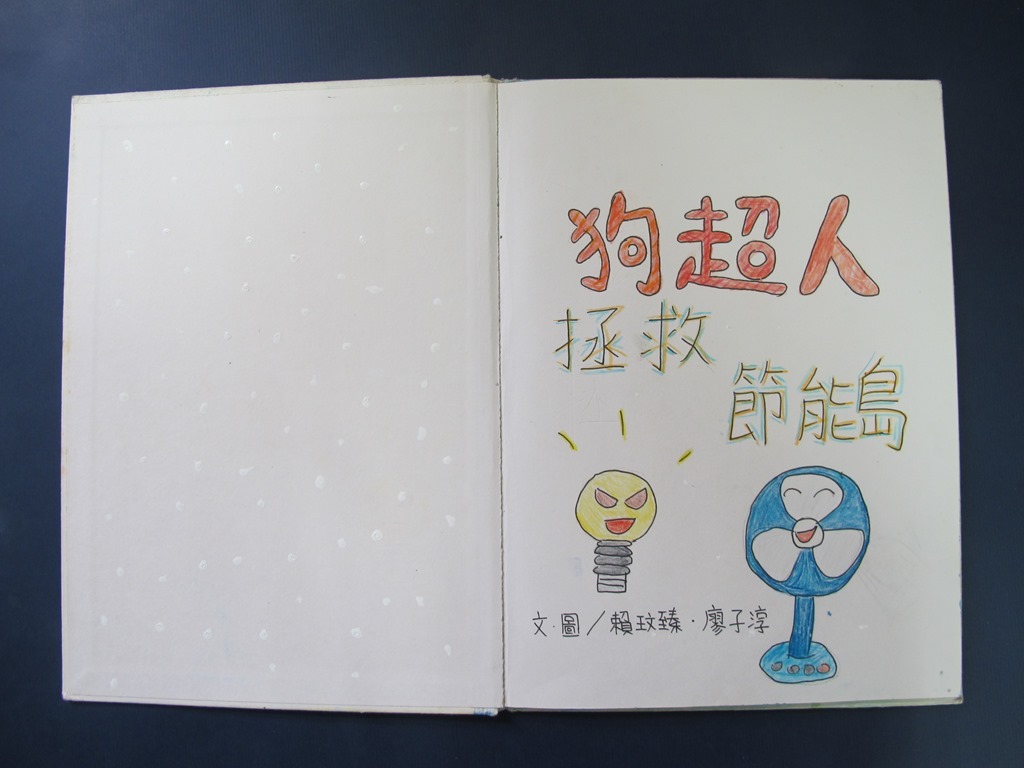 狗超人
拯救
節能島
文.圖/賴玟臻.廖子淳